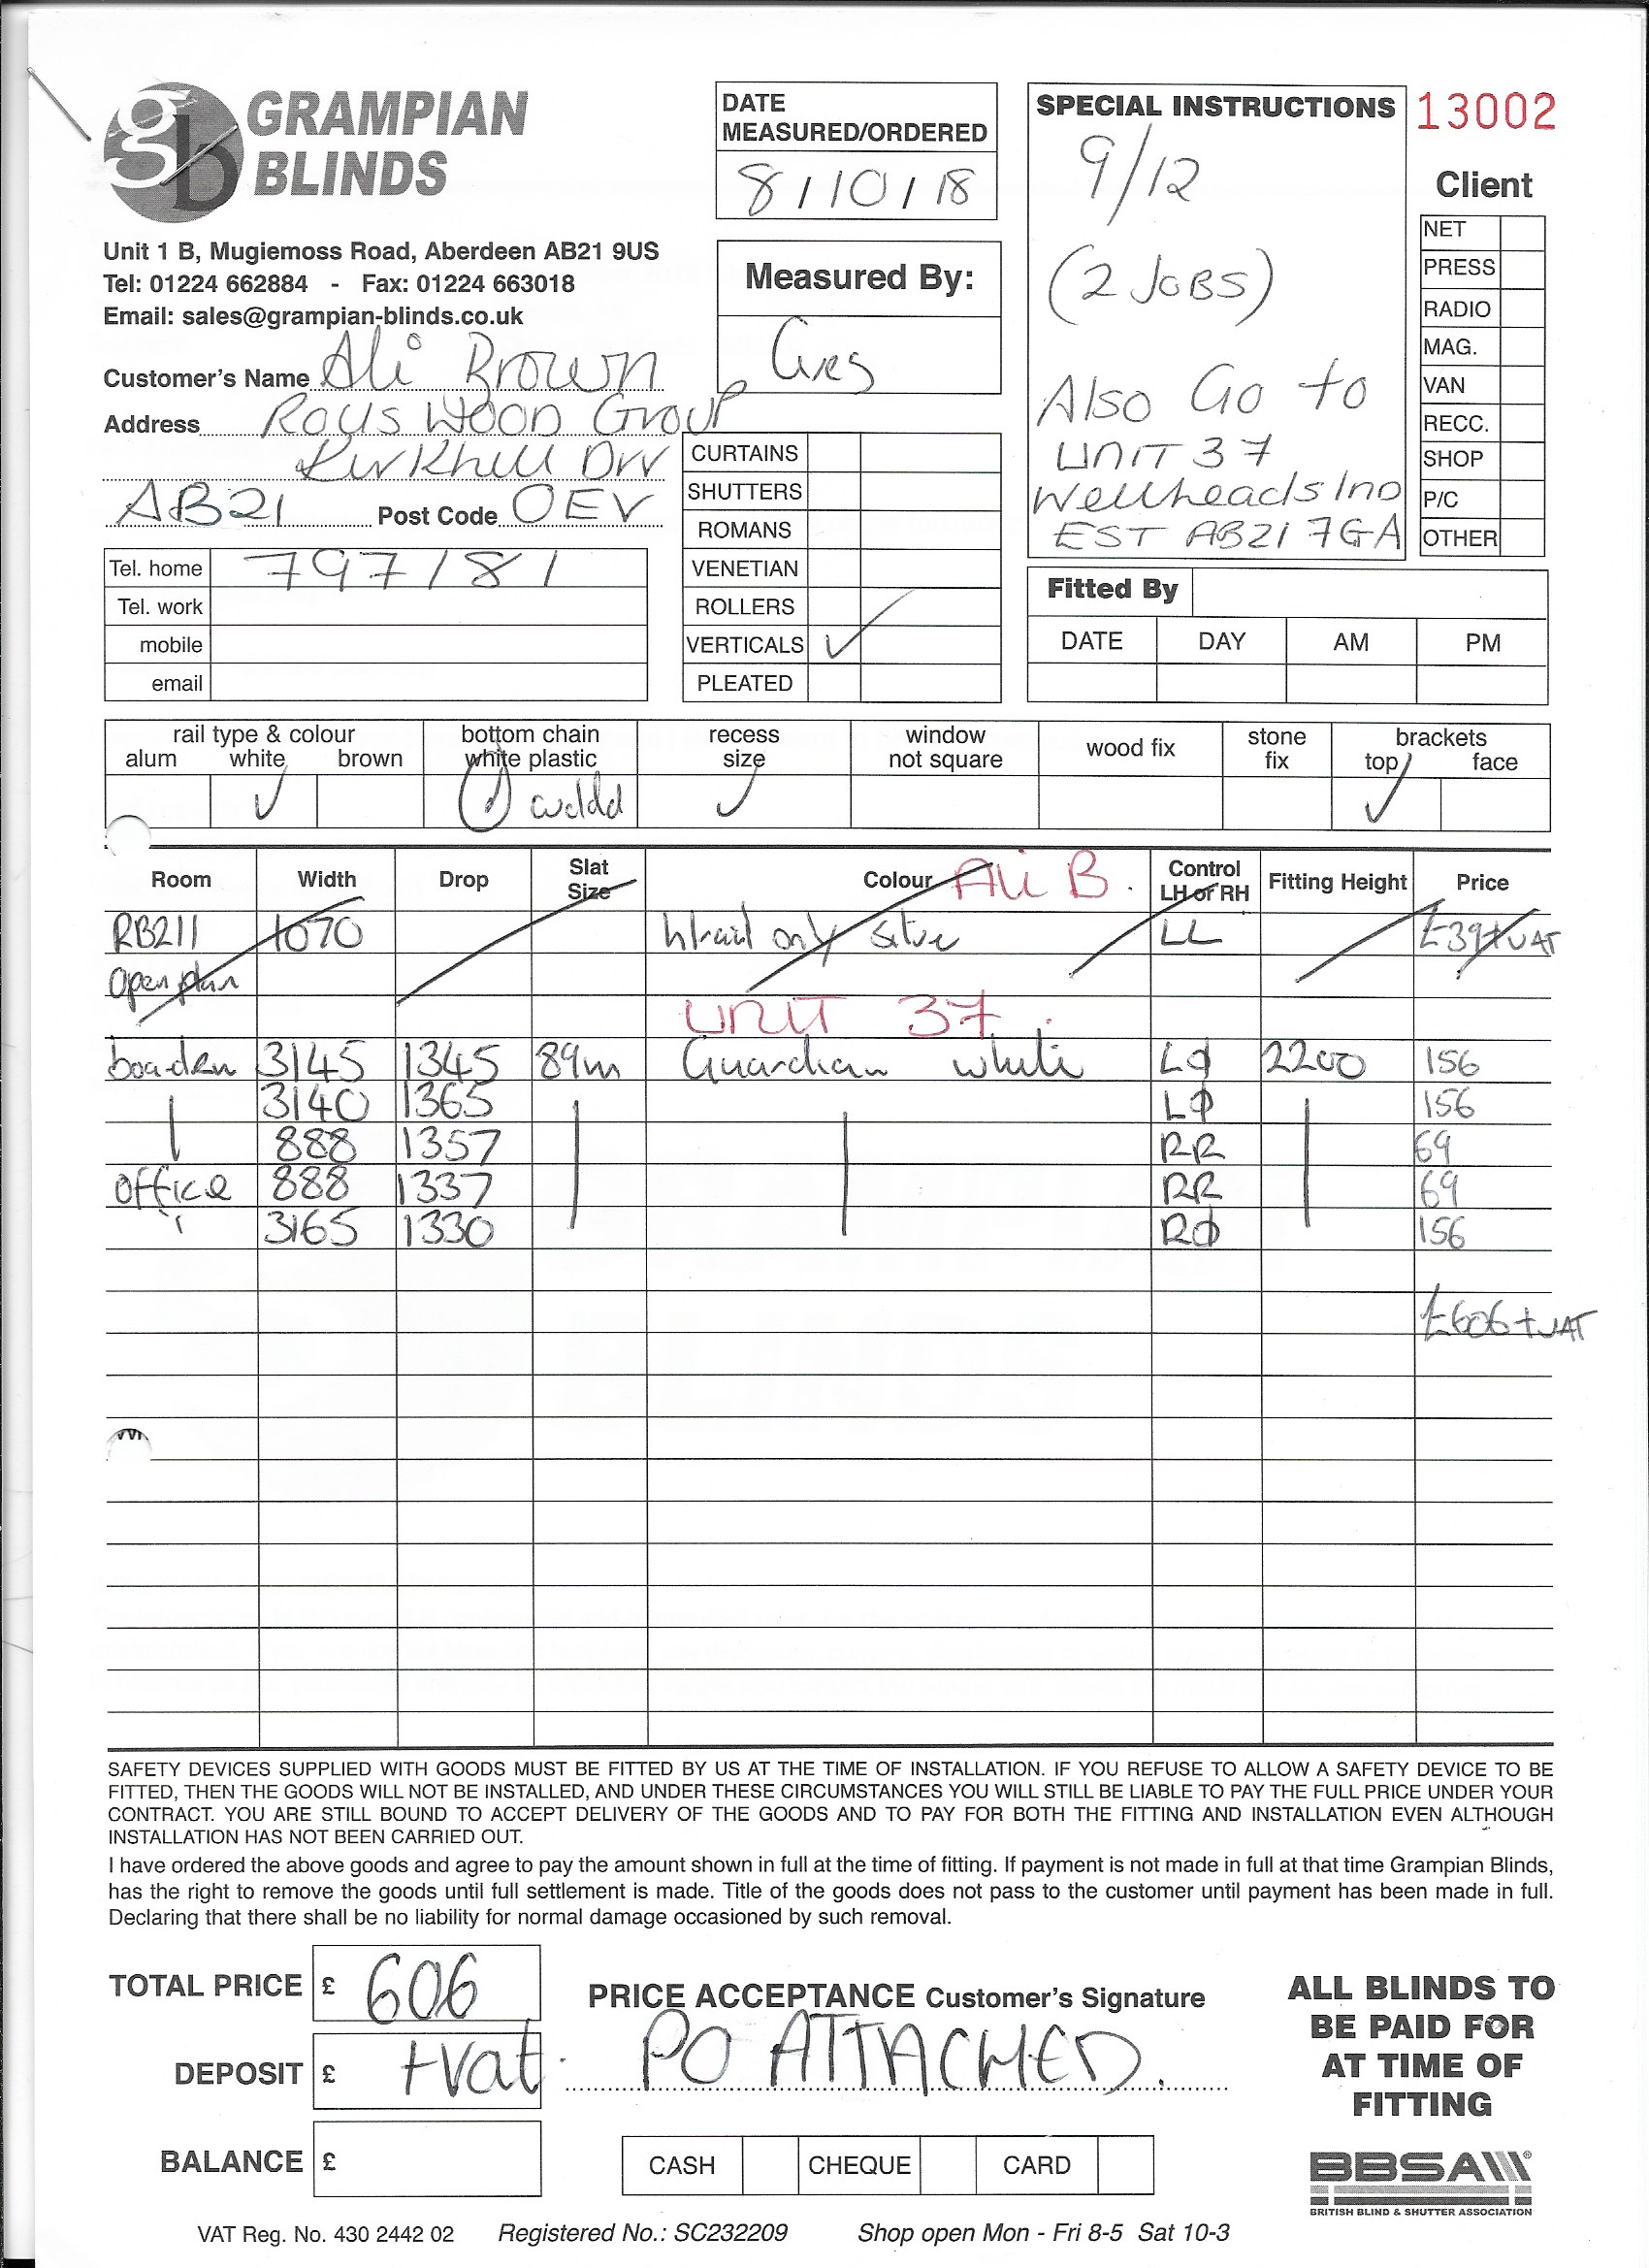 GRAMPIAN
BLINDS
Unit 1 B, Mugiemoss Road, Aberdeen AB21 9US
Tel: 01224 662884 - Fax: 01224 663018
Email: sales@grampian-blinds.co.uk
Customer's Name Ali Brown
Address Wood Group
Kirkhill
AB21 Post Code 0EV
Tel. home 797181
Tel. work
mobile
email
DATE
MEASURED/ORDERED
8/10/18
Measured By:
Greg
CURTAINS
SHUTTERS
ROMANS
VENETIAN
ROLLERS
VERTICALS ✓
PLEATED
SPECIAL INSTRUCTIONS
9/12
(2 JOBS)
Also Go to
UNIT 37
Wellheads Ind
EST AB21 7GA
13002
Client
NET
PRESS
RADIO
MAG.
VAN
RECC.
SHOP
P/C
OTHER
Fitted By
DATE DAY AM PM
rail type & colour
alum white brown
bottom chain
white plastic
recess
size
window
not square
wood fix
stone
fix
brackets
top face
✓ ✓ ✓
Room Width Drop Slat Size Colour Ali B. Control LH or RH Fitting Height Price
RB211 1070 only LL £39+VAT
Open plan
UNIT 37.
3145 1345 89m Guardian white LO 2200 156
3140 1365 LO 156
888 1357 RR 69
office 888 1337 RR 69
" 3165 1330 RO 156
£606+VAT
SAFETY DEVICES SUPPLIED WITH GOODS MUST BE FITTED BY US AT THE TIME OF INSTALLATION. IF YOU REFUSE TO ALLOW A SAFETY DEVICE TO BE
FITTED, THEN THE GOODS WILL NOT BE INSTALLED, AND UNDER THESE CIRCUMSTANCES YOU WILL STILL BE LIABLE TO PAY THE FULL PRICE UNDER YOUR
CONTRACT. YOU ARE STILL BOUND TO ACCEPT DELIVERY OF THE GOODS AND TO PAY FOR BOTH THE FITTING AND INSTALLATION EVEN ALTHOUGH
INSTALLATION HAS NOT BEEN CARRIED OUT.
I have ordered the above goods and agree to pay the amount shown in full at the time of fitting. If payment is not made in full at that time Grampian Blinds,
has the right to remove the goods until full settlement is made. Title of the goods does not pass to the customer until payment has been made in full.
Declaring that there shall be no liability for normal damage occasioned by such removal.
TOTAL PRICE £ 606
DEPOSIT £ +vat.
BALANCE £
PRICE ACCEPTANCE Customer's Signature
PO ATTACHED.
CASH CHEQUE CARD
ALL BLINDS TO
BE PAID FOR
AT TIME OF
FITTING
BBSA
BRITISH BLIND & SHUTTER ASSOCIATION
VAT Reg. No. 430 2442 02 Registered No.: SC232209 Shop open Mon - Fri 8-5 Sat 10-3